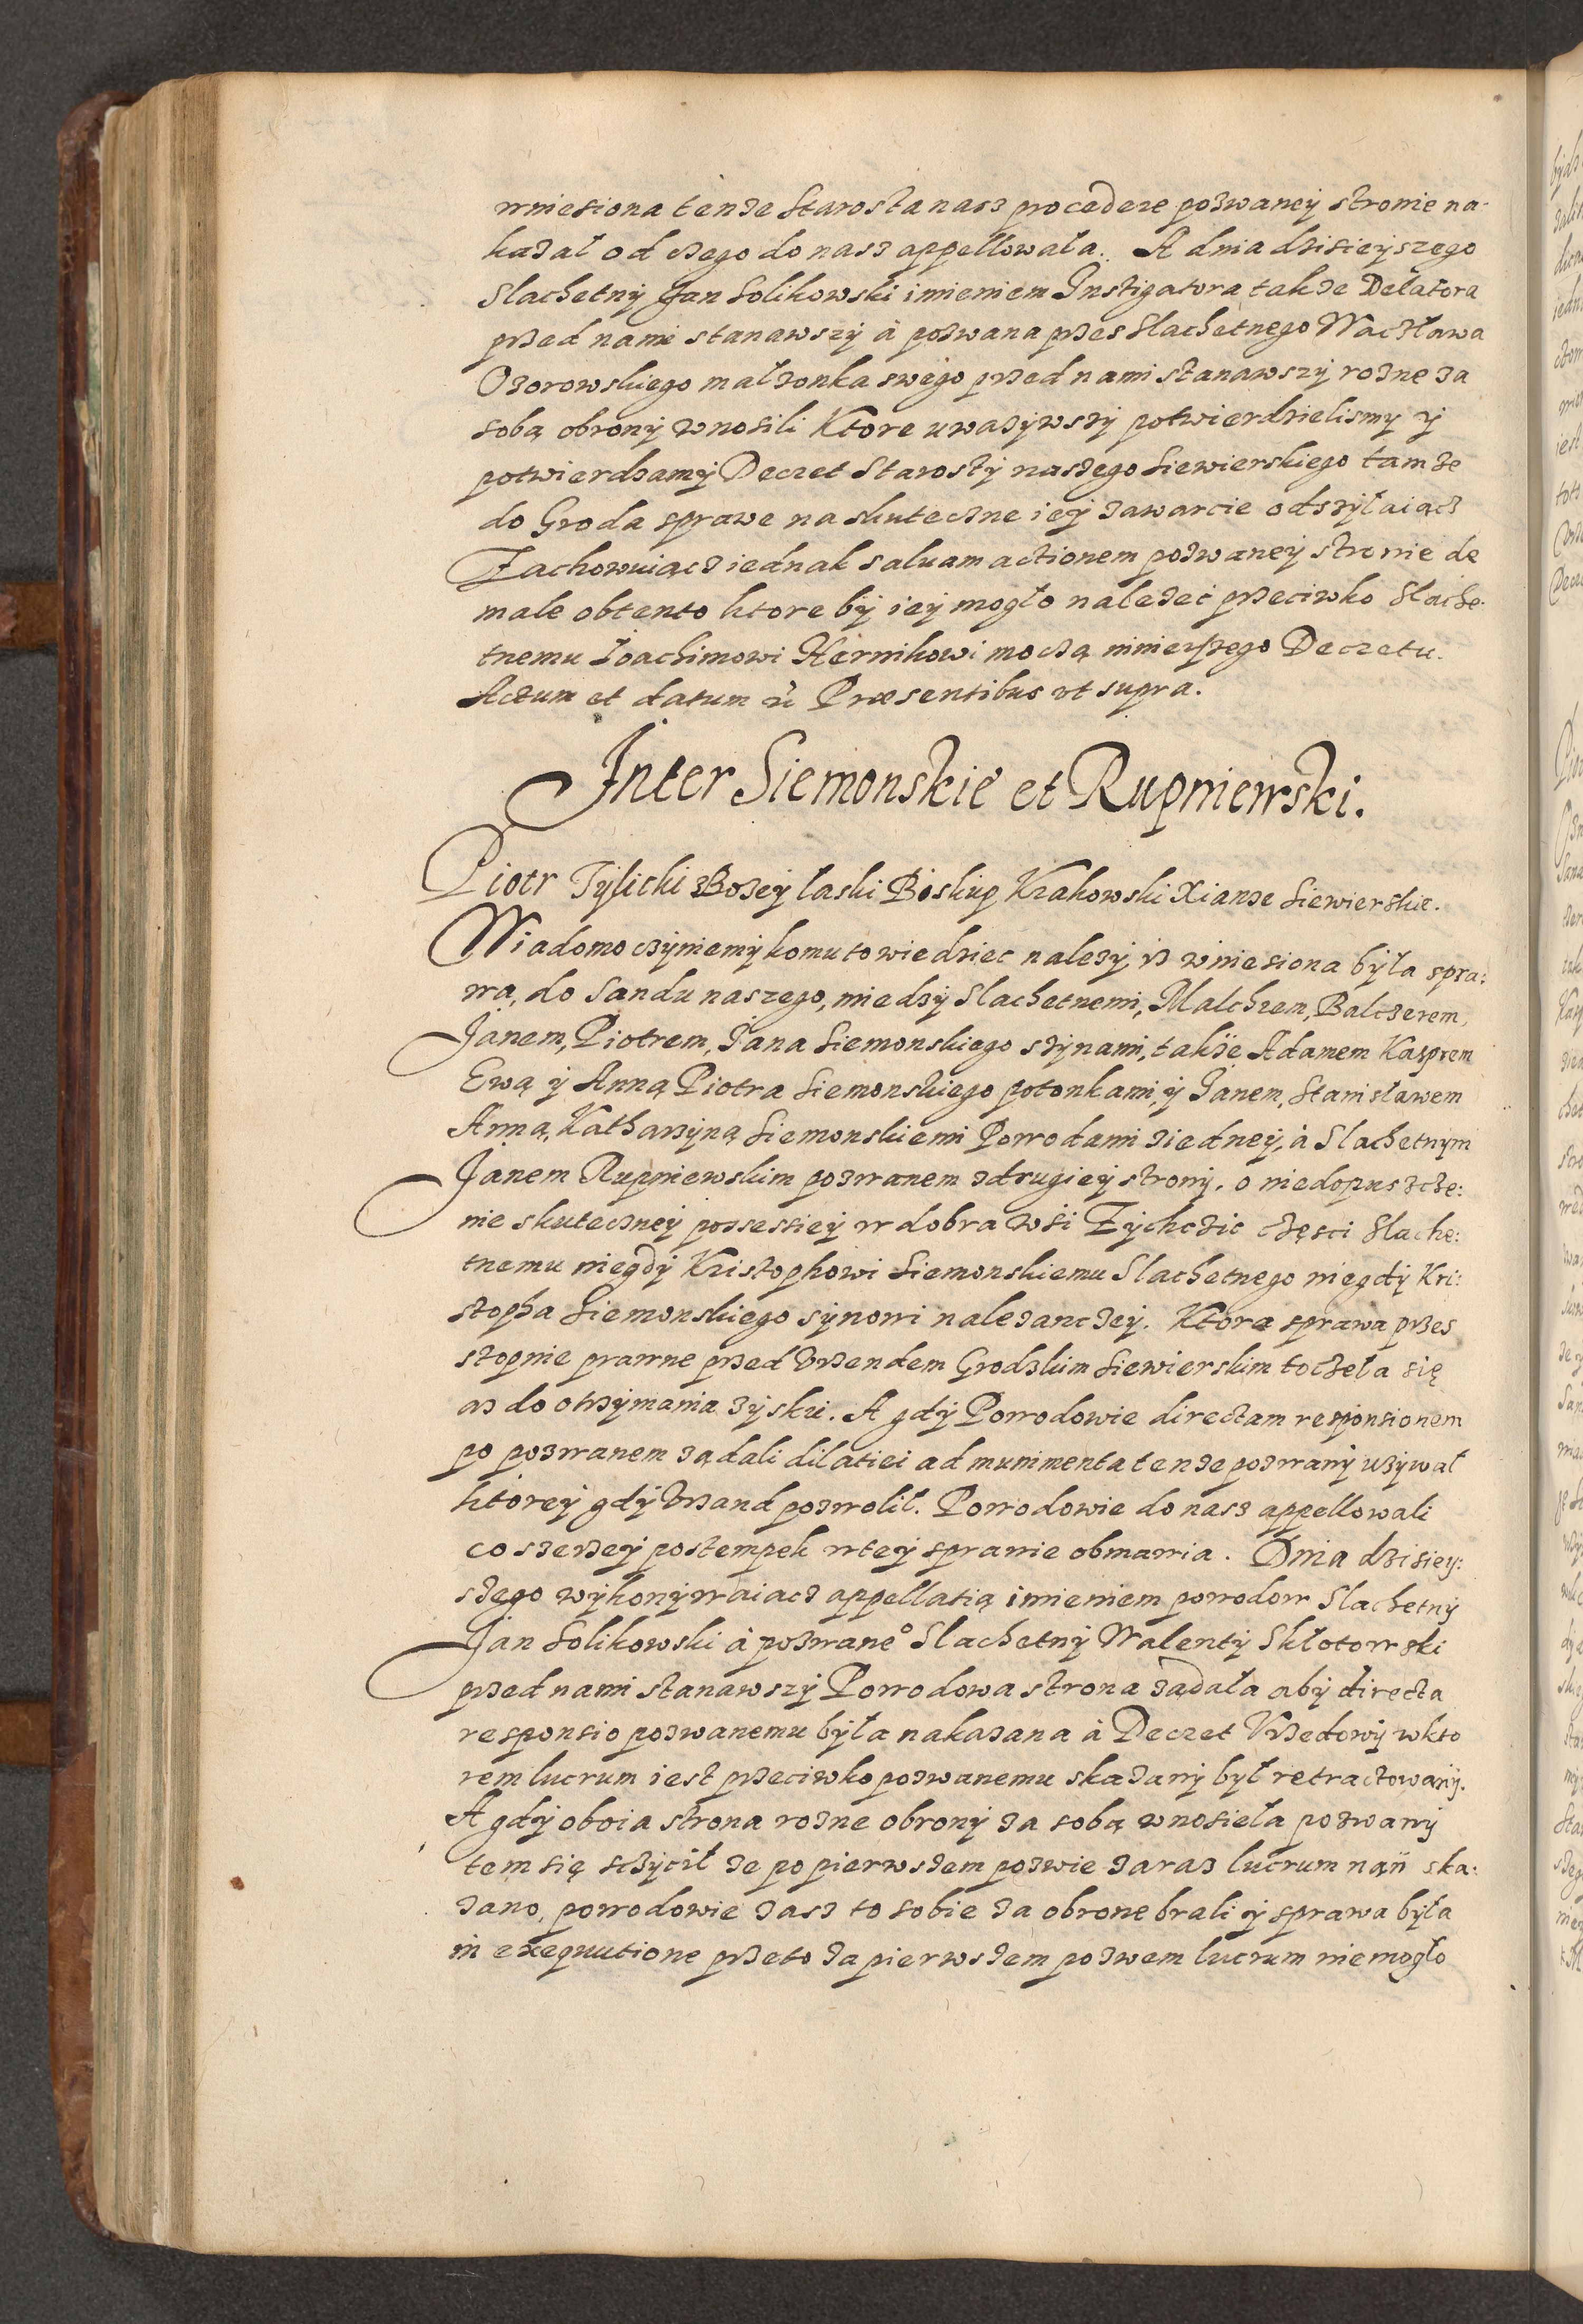 wniesiona tenze Starosta nasz procedere pozwaney stronie na-
kazał od czego do nasz appellowała. A dnia dzisieyszego
Slachetny Jan Solikowski imieniem Instigatora takze Delatora
przed nami stanawszy à pozwana przes Slachetnego Wacżława
Ozorowskiego małzonka swego przed nami stanawszy rozne za
sobą obrony wnosili Ktore uwazywszy potwierdzielismy y
potwierdzamy Decret Starosty naszego Siewierskiego tamze
do Groda sprawe na skuteczne iey zawarcie odszyłaiącz
Zachowuiącz iednak saluam actionem pozwaney stronie de
male obtento ktore by iey mogło nalezeć przeciwko Slache-
tnemu Ioachimowi Hernikowi moczą ninieyszego Decretu.
Actum et datum ù Præsentibus vt supra.
Inter Siemonskie et Rupniewski.
Piotr Tylicki z Bozey łaski Biskup Krakowski Xianze Siewierskie.
Wiadomo czyniemy komu to wiedziec nalezy, iz wniesiona była spra:
wa, do Sandu naszego, miedzy Slachetnemi, Malchrem, Balczerem,
Janem, Piotrem, Jana Siemonskiego szynami, takze Adamem Kasprem
Ewą y Anną Piotra Siemonskiego potonkami, y Janem, Stanisławem
Anną, Katharzyną Siemonskiemi Powodami ziedney, à Slachetnym
Janem Rupniewskim pozwanem zdrugiey strony. o niedopuszcze:
nie skuteczney possessiey w dobra wsi Zychczic częsci Slache:
tnemu niegdy Kristophowi Siemonskiemu Slachetnego niegdy Kri:
stopha Siemonskiego synowi nalezanczey. Ktora sprawa przes
stopnie prawne przed Vrzendem Grodzkim Siewierskim toczeła się
az do otrzymania zysku. A gdy Powodowie directam responsionem
po pozwanem ządali dilatiei ad munimenta tenze pozwany uzywał
ktorey gdy Vrzand pozwolił. Powodowie do nasz appellowali
co szerzey postempek w tey sprawie obmawia. Dnia dzisiey:
szego wykonywaiacz appellatią imieniem powodow Slachetny
Jan Solikowski à pozwane° Slachetny Walenty Skłotowski
przed nami stanawszy Powodowa strona ządała aby directa
responsio pozwanemu była nakazana à Decret Vrzedowy w kto
rem lucrum iest przeciwko pozwanemu skazany był retractowany.
A gdy oboia strona rozne obrony za sobą wnosieła pozwany
tem się sczycił ze po pierwszem pozwie zaraz lucrum nąń ska:
zano, powodowie zasz to sobie za obronę brali y sprawa była
in exequutione przeto za pierwszem pozwem lucrum niemogło